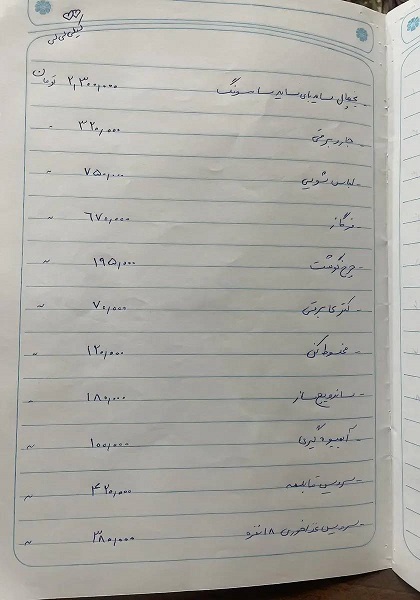 لیلی لی لی
- یخچال ساید بای ساید سامسونگ ۲,۳۰۰,۰۰۰ تومان
- جاروبرقی ۳۲۰,۰۰۰ "
- لباس شویی ۷۵۰,۰۰۰ "
- فرگاز ۶۷۰,۰۰۰ "
- چرخ گوشت ۱۹۵,۰۰۰ "
- کتری برقی ۷۰,۰۰۰ "
- مخلوط کن ۱۲۰,۰۰۰ "
- ساندویچ ساز ۱۸۰,۰۰۰ "
- آبمیوه گیری ۱۰۰,۰۰۰ "
- سرویس قابلمه ۴۲۰,۰۰۰ "
- سرویس غذاخوری ۱۸ نفره ۳۸۰,۰۰۰ "